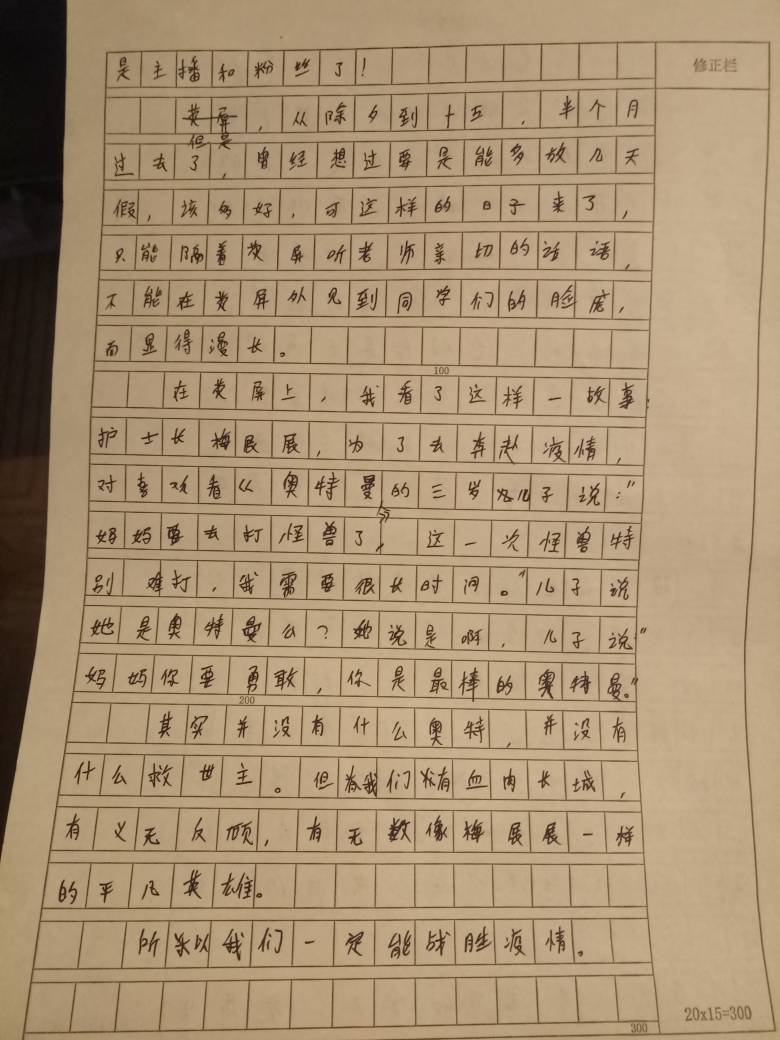 是主播和粉丝了!
修正栏
荧屏,从除夕到十五,半个月
但是
过去了,曾经想过要是能多放几天
假,该多好,可这样的日子来了,
只能隔着荧屏听老师亲切的话语,
不能在荧屏外见到同学们的脸庞,
而显得漫长。
100
在荧屏上,我看了这样一故事:
护士长梅展展,为了去奔赴疫情,
对喜欢看《奥特曼的三岁儿子说:"
妈妈要去打怪兽了,这一次怪兽特
别难打,我需要很长时间。"儿子说
她是奥特曼么?她说是啊,儿子说"
妈妈你要勇敢,你是最棒的奥特曼。"
200
其实并没有什么奥特,并没有
什么救世主。但我们有血肉长城,
有义无反顾,有无数像梅展展一样
的平凡英雄。
所以我们一定能战胜疫情。
300
20x15=300